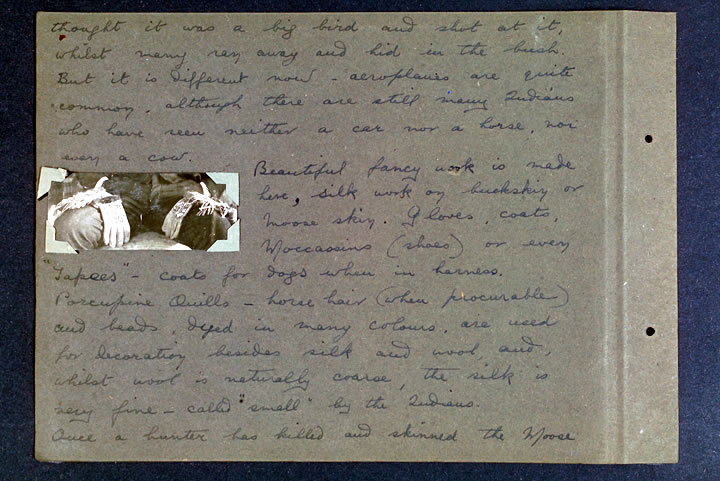 thought it was a big bird and shot at it,
whilst many ran away and hid in the bush.
But it is different now - aeroplanes are quite
common, although there are still many Indians
who have seen neither a car nor a horse, nor
even a cow.
Beautiful fancy work is made
here, silk work on buckskin or
moose skin. Gloves, coats,
Moccassins (shoes) or even
"Tapees" - coats for dogs when in harness.
Porcupine Quills - horse hair (when procurable)
and beads, dyed in many colours, are used
for decoration besides silk and wool, and,
whilst wool is naturally coarse, the silk is
very fine - called "small" by the Indians.
Once a hunter has killed and skinned the Moose